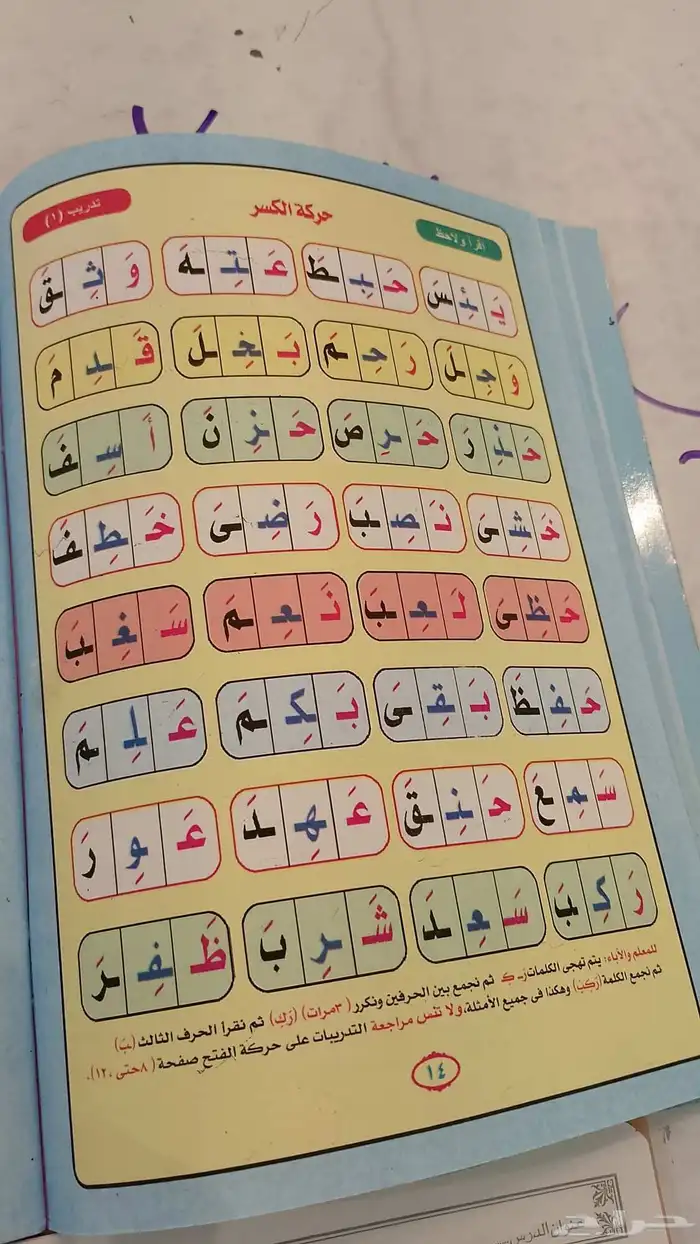 اقرأ ولاحظ حركة الكسر تدريب (١)
يَـ ـئِـ ـسَ حَـ ـبِـ ـطَ عَـ ـتِـ ـهَ وَ ثِـ ـقَ
وَ جِـ ـلَ رَ حِـ ـمَ بَـ ـخِـ ـلَ قَـ ـدِ مَ
حَـ ـذِ رَ حَـ ـرِ صَ حَـ ـزِ نَ أَ سِـ ـفَ
خَـ ـشِـ ـىَ نَـ ـصِـ ـبَ رَ ضِـ ـىَ خَـ ـطِـ ـفَ
حَـ ـظِـ ـىَ لَـ ـعِـ ـبَ نَـ ـعِـ ـمَ سَـ ـغِـ ـبَ
حَـ ـفِـ ـظَ بَـ ـقِـ ـىَ بَـ ـكِـ ـمَ عَـ ـلِـ ـمَ
سَـ ـمِـ ـعَ حَـ ـنِـ ـقَ عَـ ـهِـ ـدَ عَـ ـوِ رَ
رَ كِـ ـبَ سَـ ـعِـ ـدَ شَـ ـرِ بَ ظَـ ـفِـ ـرَ
للمعلم والآباء: يتم تهجى الكلمات رَ ـ كِـ ثم نجمع بين الحرفين ونكرر (٣مرات) (رَكِ) ثم نقرأ الحرف الثالث (بَ)
ثم نجمع الكلمة (رَكِبَ) وهكذا فى جميع الأمثلة، ولا تنس مراجعة التدريبات على حركة الفتح صفحة (٨حتى ١٢).
١٤
عنوان الدرس
حراج